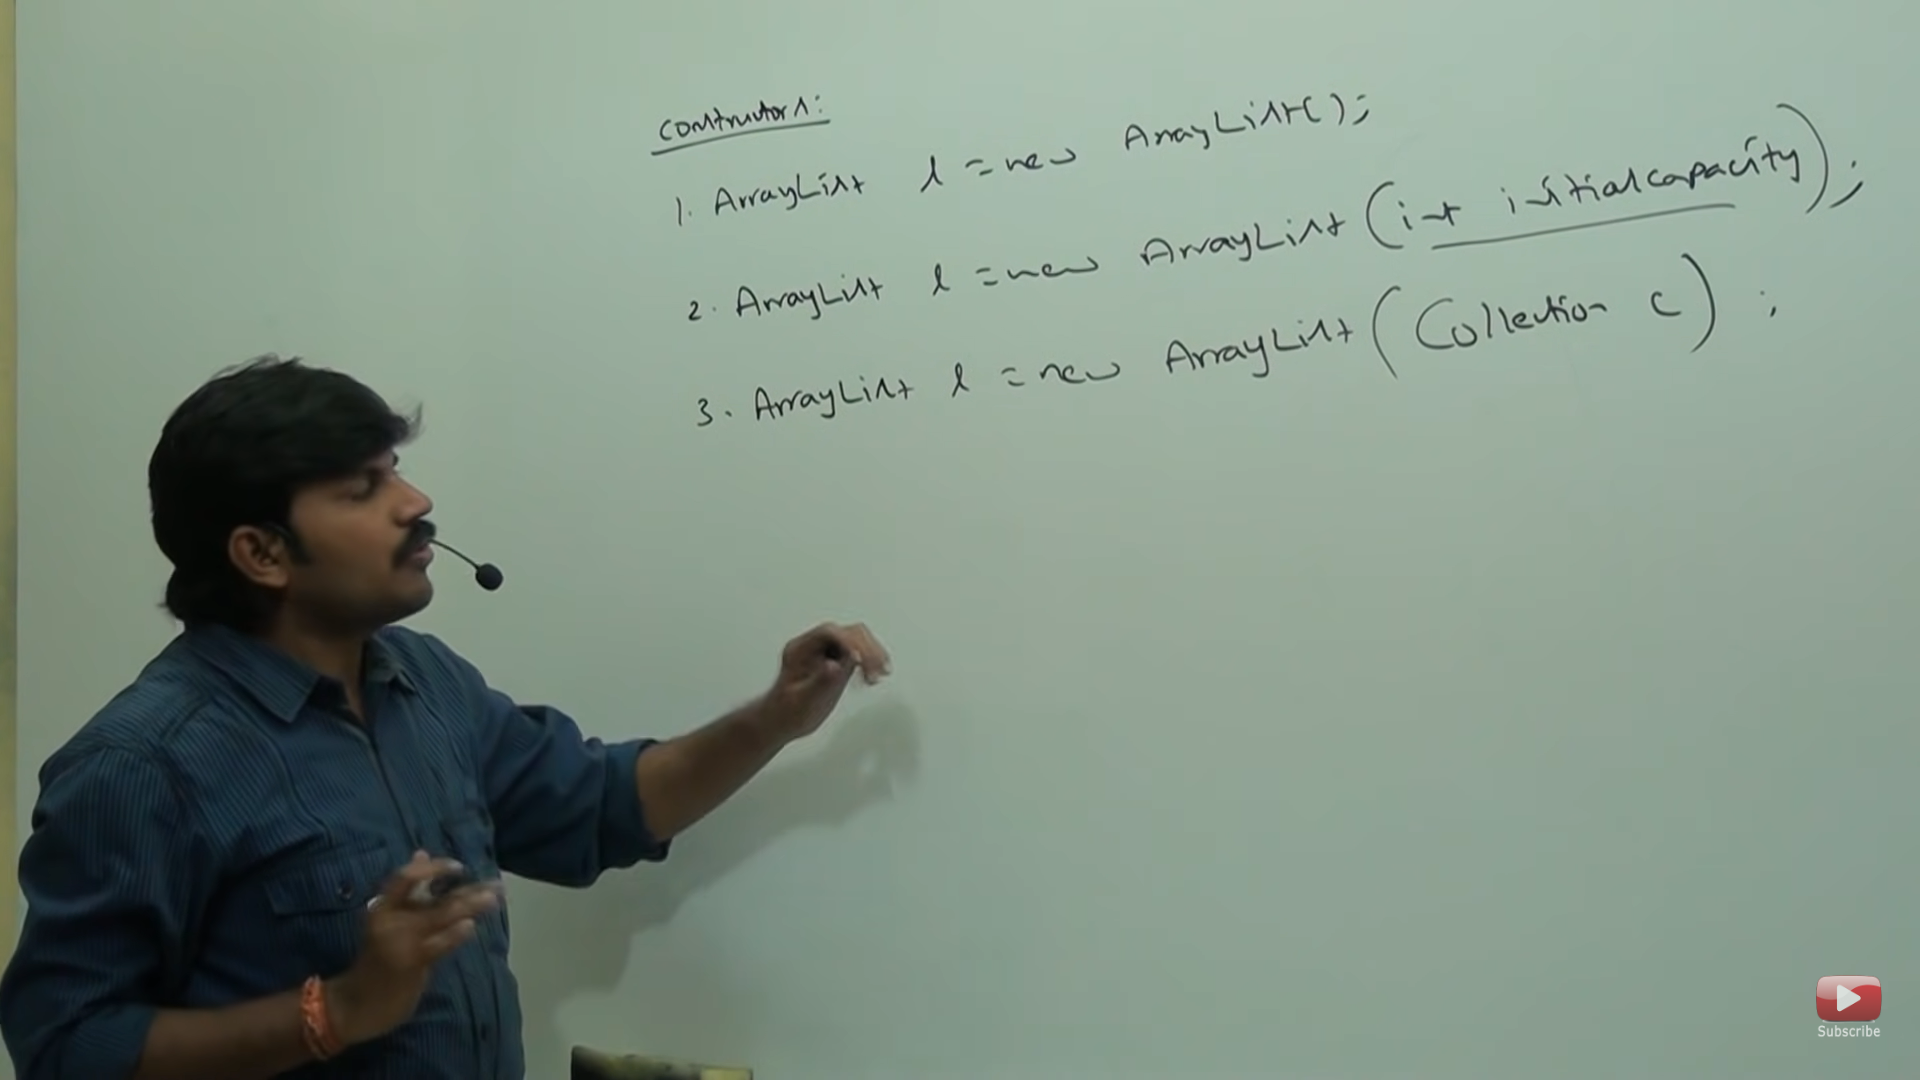 constructors:
1. ArrayList l = new ArrayList();
2. ArrayList l = new ArrayList(int initialcapacity);
3. ArrayList l = new ArrayList(Collection c);
Subscribe